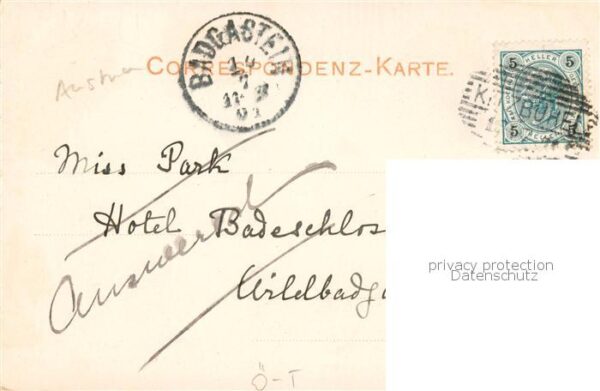 Austria
CORRESPONDENZ-KARTE.
BADGASTEIN
5 HELLER 5
5 5
Miss Park
Hotel Badeschlos
Wildbadga
Answered
privacy protection
Datenschutz
Ö-T